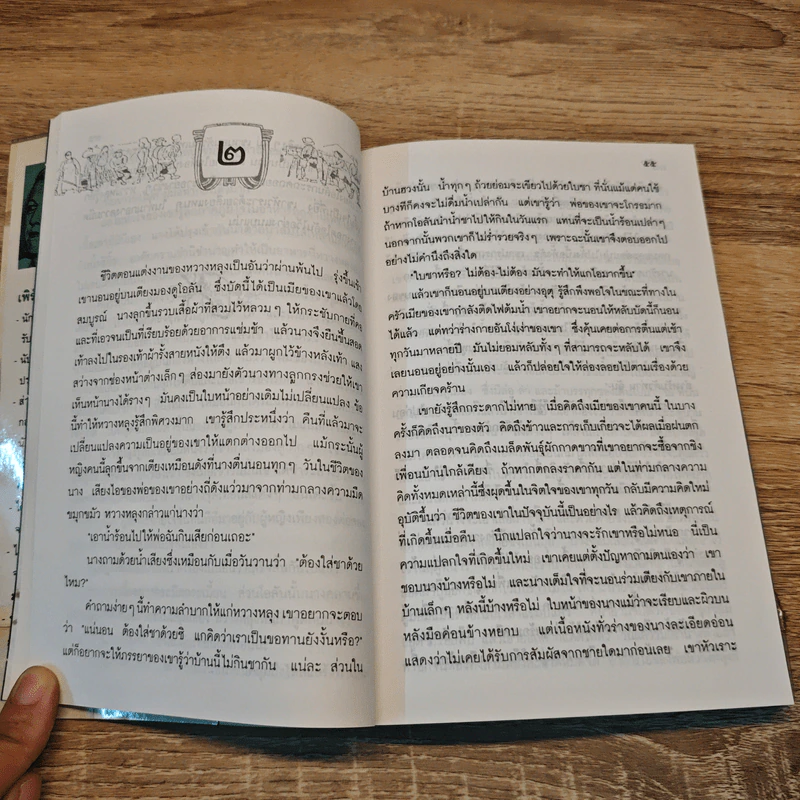 ๒
ชีวิตตอนแต่งงานของหวางหลุงเป็นอันว่าผ่านพ้นไป รุ่งขึ้นเช้า
เขานอนอยู่บนเตียงมองดูโอลัน ซึ่งบัดนี้ได้เป็นเมียของเขาแล้วโดย
สมบูรณ์ นางลุกขึ้นรวบเสื้อผ้าที่สวมไว้หลวมๆ ให้กระชับกายที่คอ
และที่เอวจนเป็นที่เรียบร้อยด้วยอาการแช่มช้า แล้วนางจึงยืนขึ้นสอด
เท้าลงไปในรองเท้าผ้ารั้งสายหนังให้ตึง แล้วมาผูกไว้ข้างหลังเท้า แสง
สว่างจากช่องหน้าต่างเล็กๆ ส่องมายังตัวนางทางลูกกรงช่วยให้เขา
เห็นหน้านางได้รางๆ มันคงเป็นใบหน้าอย่างเดิมไม่เปลี่ยนแปลง ข้อ
นี้ทำให้หวางหลุงรู้สึกพิศวงมาก เขารู้สึกประหนึ่งว่า คืนที่แล้วมาจะ
เปลี่ยนแปลงความเป็นอยู่ของเขาให้แตกต่างออกไป แม้กระนั้นผู้
หญิงคนนี้ลุกขึ้นจากเตียงเหมือนดังที่นางตื่นนอนทุกๆ วันในชีวิตของ
นาง เสียงไอของพ่อของเขาอย่างถี่ดังแว่วมาจากท่ามกลางความมืด
ขมุกขมัว หวางหลุงกล่าวแก่นางว่า
"เอาน้ำร้อนไปให้พ่อฉันกินเสียก่อนเถอะ"
นางถามด้วยน้ำเสียงซึ่งเหมือนกับเมื่อวันวานว่า "ต้องใส่ชาด้วย
ไหม?"
คำถามง่ายๆ นี้ทำความลำบากให้แก่หวางหลุง เขาอยากจะตอบ
ว่า "แน่นอน ต้องใส่ชาด้วยซิ แกคิดว่าเราเป็นขอทานยังงั้นหรือ?"
แต่ก็อยากจะให้ภรรยาของเขารู้ว่าบ้านนี้ไม่กินชากัน แน่ละ ส่วนใน
๕๕
บ้านฮวงนั้น น้ำทุกๆ ถ้วยย่อมจะเขียวไปด้วยใบชา ที่นั่นแม้แต่คนใช้
บางทีก็คงจะไม่ดื่มน้ำเปล่ากัน แต่เขารู้ว่า พ่อของเขาจะโกรธมาก
ถ้าหากโอลันนำน้ำชาไปให้กินในวันแรก แทนที่จะเป็นน้ำร้อนเปล่าๆ
นอกจากนั้นพวกเขาก็ไม่ร่ำรวยจริงๆ เพราะฉะนั้นเขาจึงตอบออกไป
อย่างไม่คำนึงถึงสิ่งใด
"ใบชาหรือ? ไม่ต้อง-ไม่ต้อง มันจะทำให้แกไอมากขึ้น"
แล้วเขาก็นอนอยู่บนเตียงอย่างอุตุ รู้สึกพึงพอใจในขณะที่ทางใน
ครัวเมียของเขากำลังติดไฟต้มน้ำ เขาอยากจะนอนให้หลับบัดนี้ก็นอน
ได้แล้ว แต่ทว่าร่างกายอันโง่เง่าของเขา ซึ่งคุ้นเคยต่อการตื่นแต่เช้า
ทุกวันมาหลายปี มันไม่ยอมหลับทั้งๆ ที่สามารถจะหลับได้ เขาจึง
เลยนอนอยู่อย่างนั้นเอง แล้วก็ปล่อยใจให้ล่องลอยไปตามเรื่องด้วย
ความเกียจคร้าน
เขายังรู้สึกกระดากไม่หาย เมื่อคิดถึงเมียของเขาคนนี้ ในบาง
ครั้งก็คิดถึงนาของตัว คิดถึงข้าวและการเก็บเกี่ยวจะได้ผลเมื่อฝนตก
ลงมา ตลอดจนคิดถึงเมล็ดพันธุ์ผักกาดขาวที่เขาอยากจะซื้อจากชิง
เพื่อนบ้านใกล้เคียง ถ้าหากตกลงราคากัน แต่ในท่ามกลางความ
คิดทั้งหมดเหล่านี้ซึ่งผุดขึ้นในจิตใจของเขาทุกวัน กลับมีความคิดใหม่
อุบัติขึ้นว่า ชีวิตของเขาในปัจจุบันนี้เป็นอย่างไร แล้วคิดถึงเหตุการณ์
ที่เกิดขึ้นเมื่อคืน นึกแปลกใจว่านางจะรักเขาหรือไม่หนอ นี่เป็น
ความแปลกใจที่เกิดขึ้นใหม่ เขาเคยแต่ตั้งปัญหาถามตนเองว่า เขา
ชอบนางบ้างหรือไม่ และนางเต็มใจที่จะนอนร่วมเตียงกับเขาภายใน
บ้านเล็กๆ หลังนี้บ้างหรือไม่ ใบหน้าของนางแม้ว่าจะเรียบและผิวบน
หลังมือค่อนข้างหยาบ แต่เนื้อหนังทั่วร่างของนางละเอียดอ่อน
แสดงว่าไม่เคยได้รับการสัมผัสจากชายใดมาก่อนเลย เขาหัวเราะ